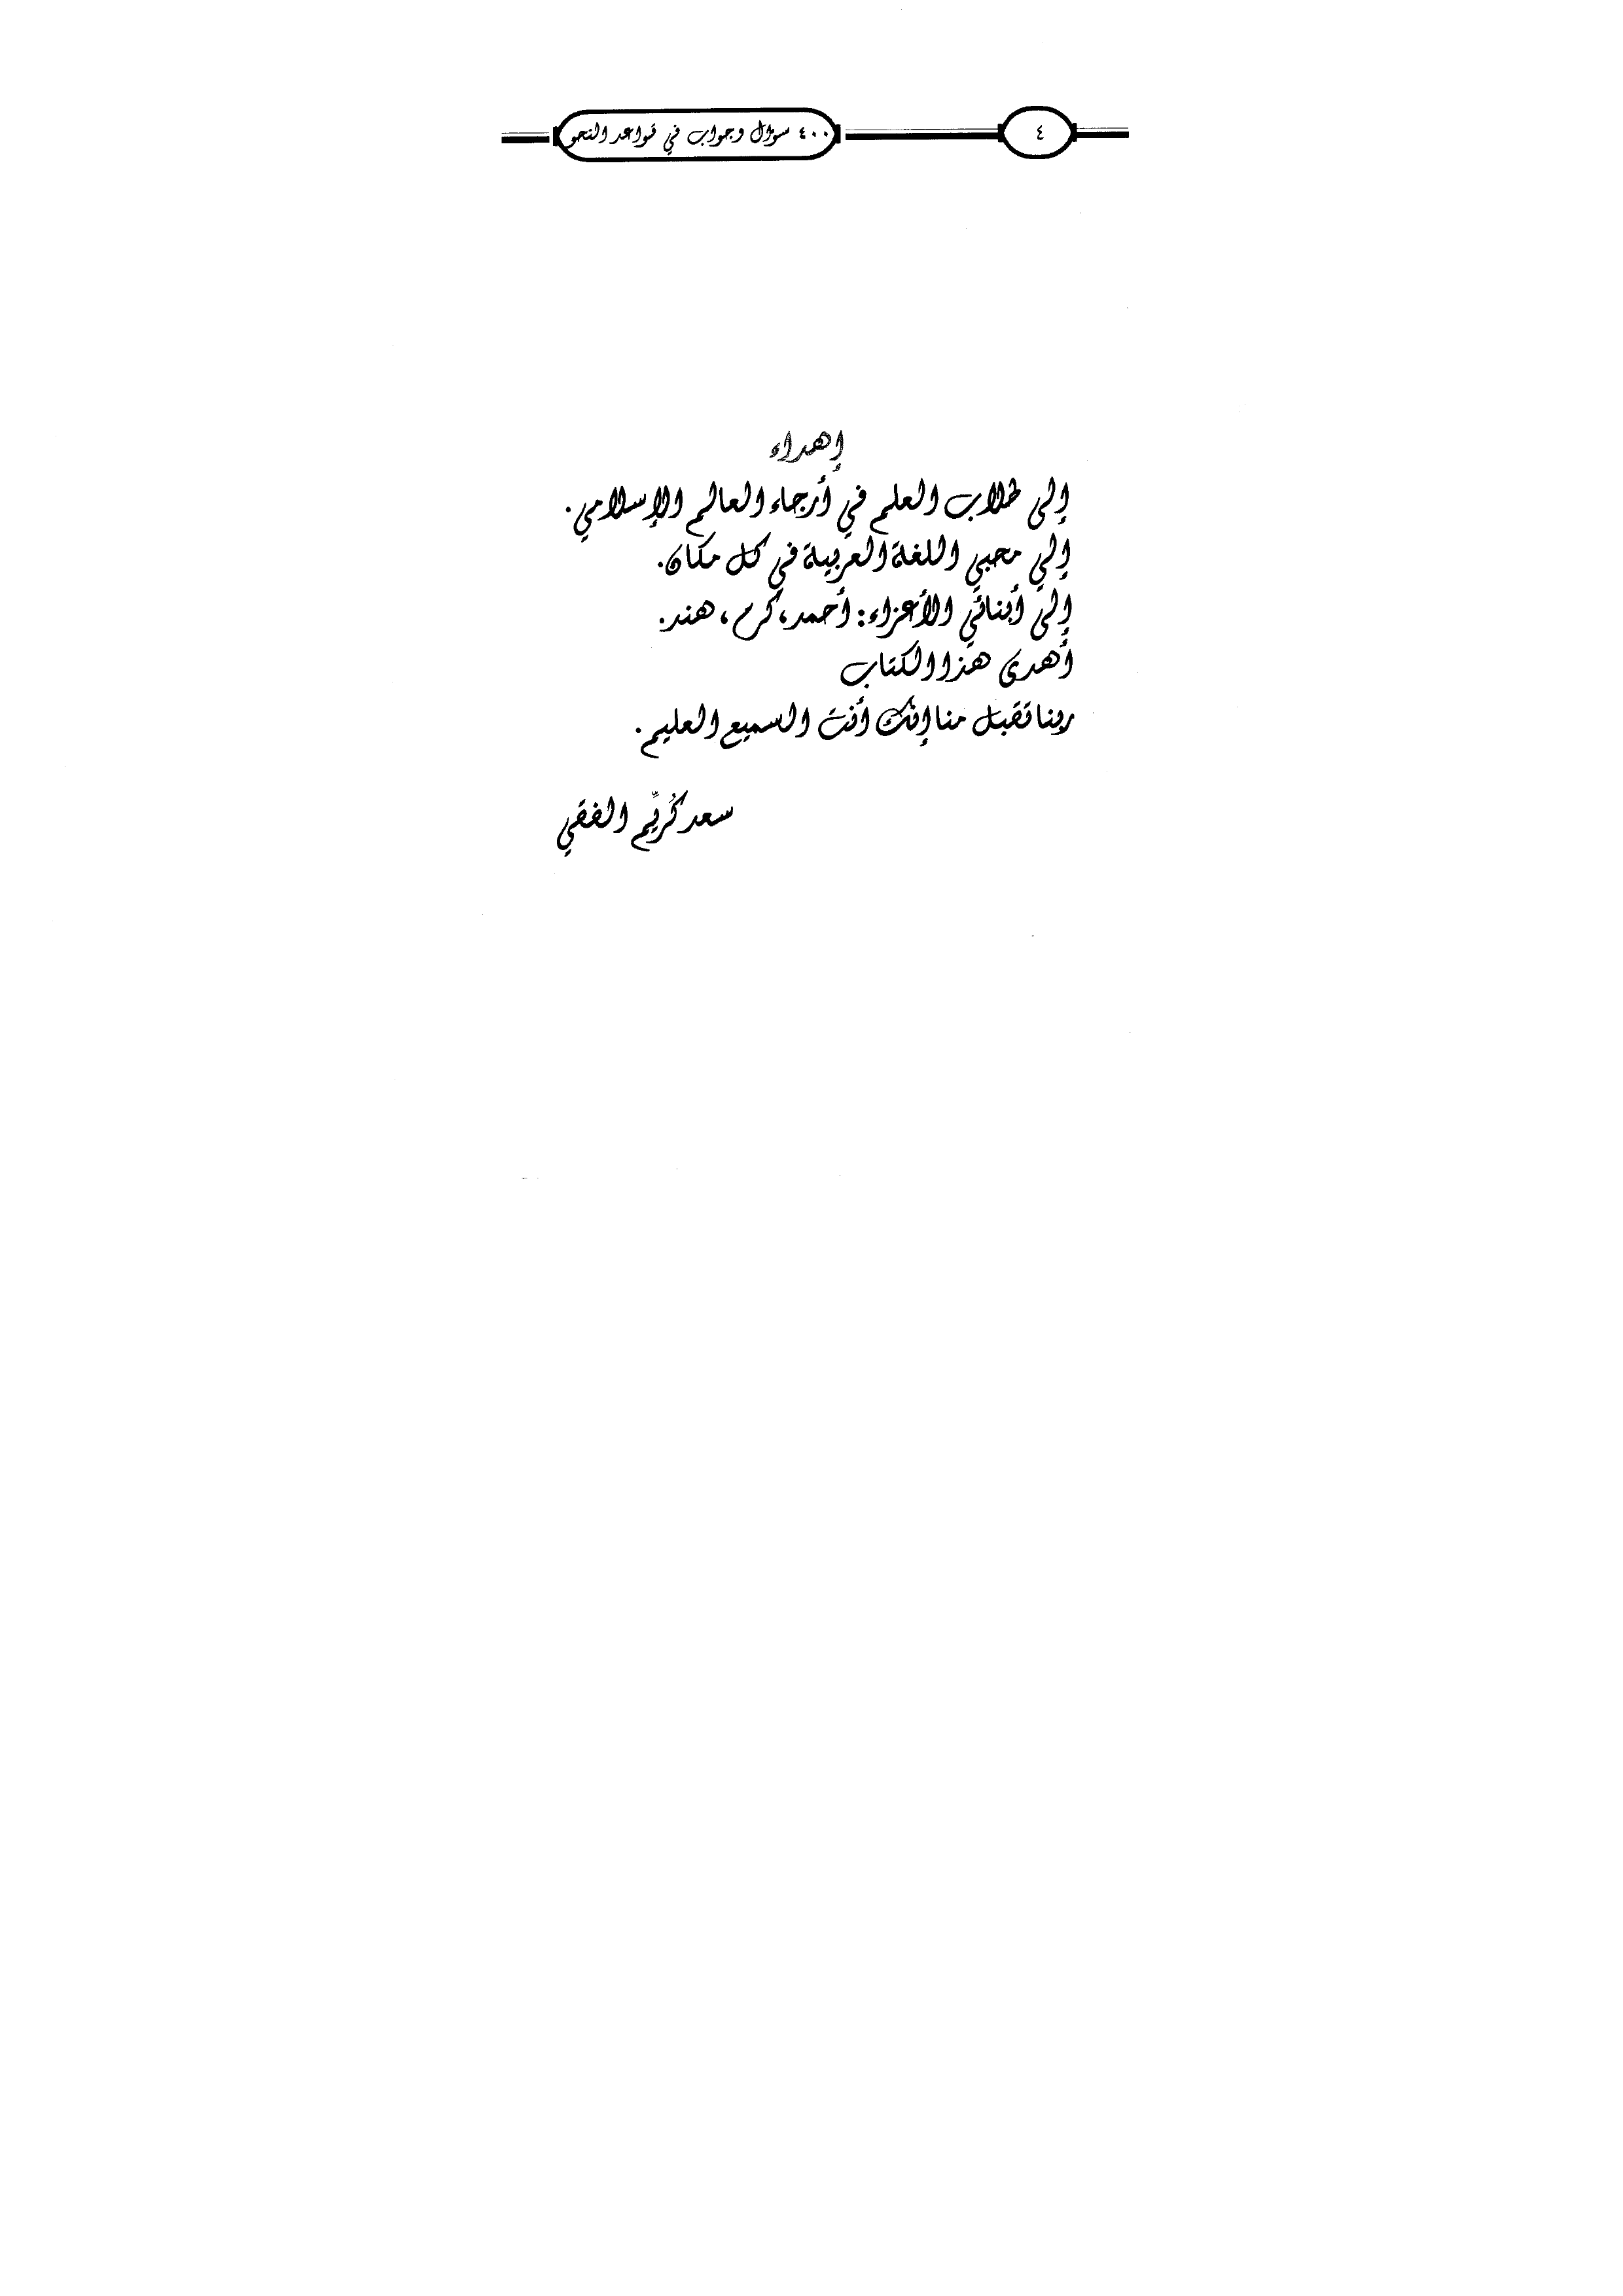 ٤
٤٠٠ سؤال وجواب في قواعد النحو
إهداء
إلى طلاب العلم في أرجاء العالم الإسلامي.
إلي محبي اللغة العربية في كل مكان.
إلى أبنائي الأعزاء: أحمد، كرم، هند.
أهدى هذا الكتاب
ربنا تقبل منا إنك أنت السميع العليم.
سعد كُريِّم الفقي